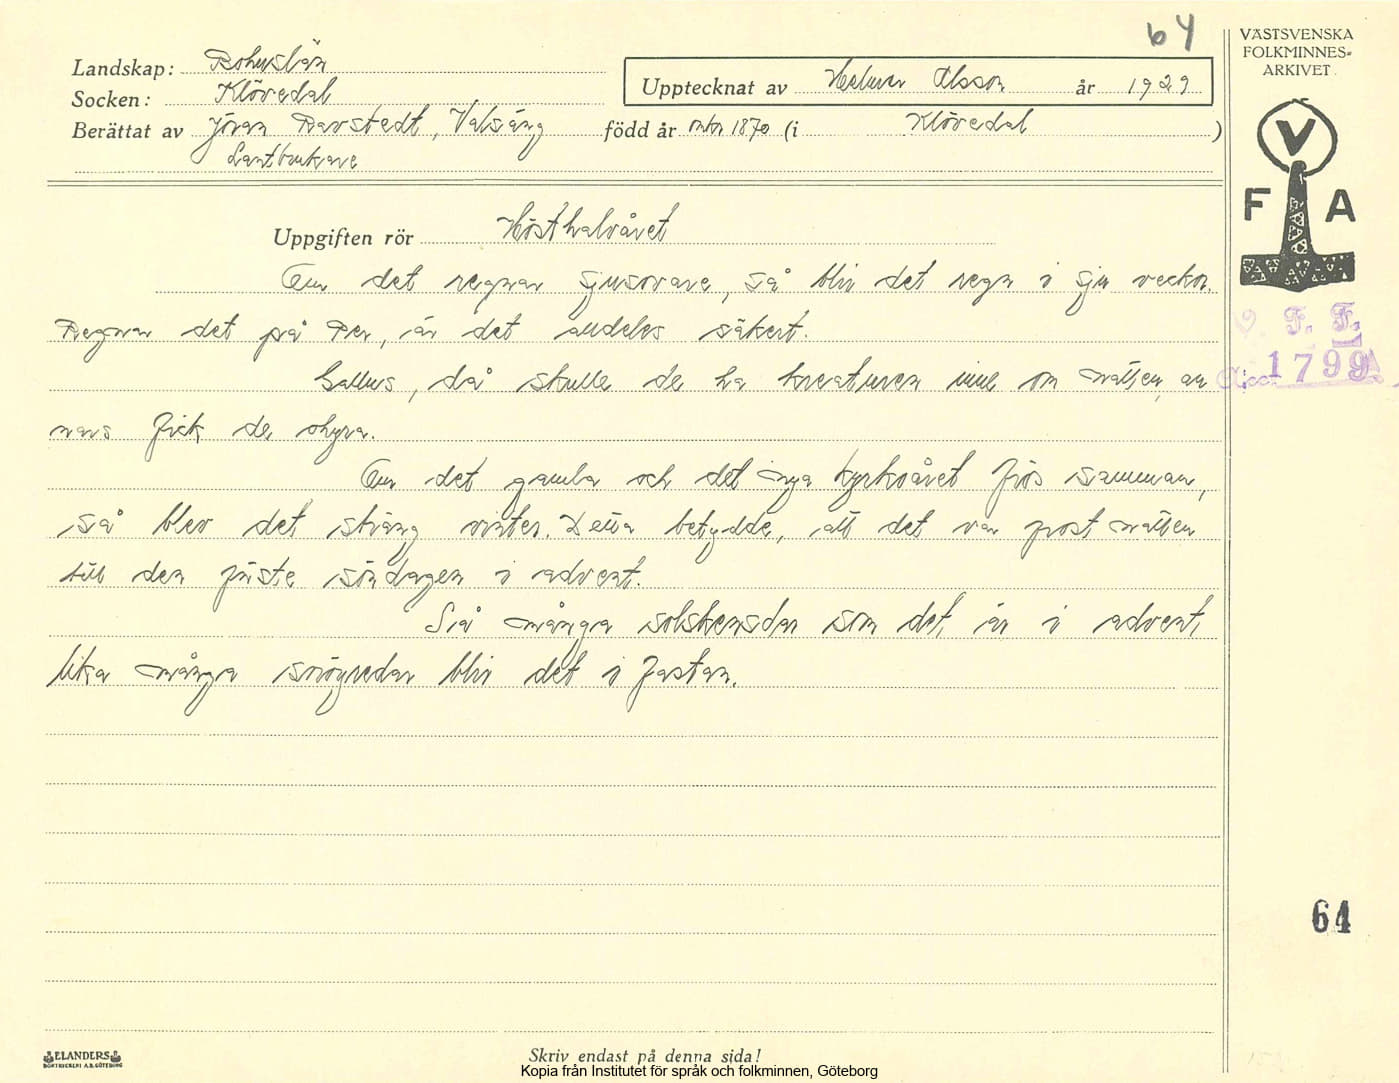 64
VÄSTSVENSKA
FOLKMINNES-
ARKIVET
Landskap: Bohuslän
Socken: Klövedal
Upptecknat av Helmer Olsson år 1929
Berättat av Jöran Bavstedt, Valsäng född år omkr 1870 (i Klövedal)
Lantbrukare
V
F A
Uppgiften rör Hösthalvåret
Om det regnar sjusovare, så blir det regn i sju veckor.
Regnar det på Per, är det alldeles säkert.
Gallus, då skulle de ha kreaturen inne om natten, an
nars fick de ohyra.
Om det gamla och det nya kyrkoåret frös samman,
så blev det sträng vinter. Detta betydde, att det var frost natten
till den första söndagen i advent.
Så många solskensdar som det är i advent,
lika många snöyredar blir det i fastan.
V. F. F.
Acc. 1799
64
ELANDERS
BOKTRYCKERI A.B. GÖTEBORG
Skriv endast på denna sida!
Kopia från Institutet för språk och folkminnen, Göteborg